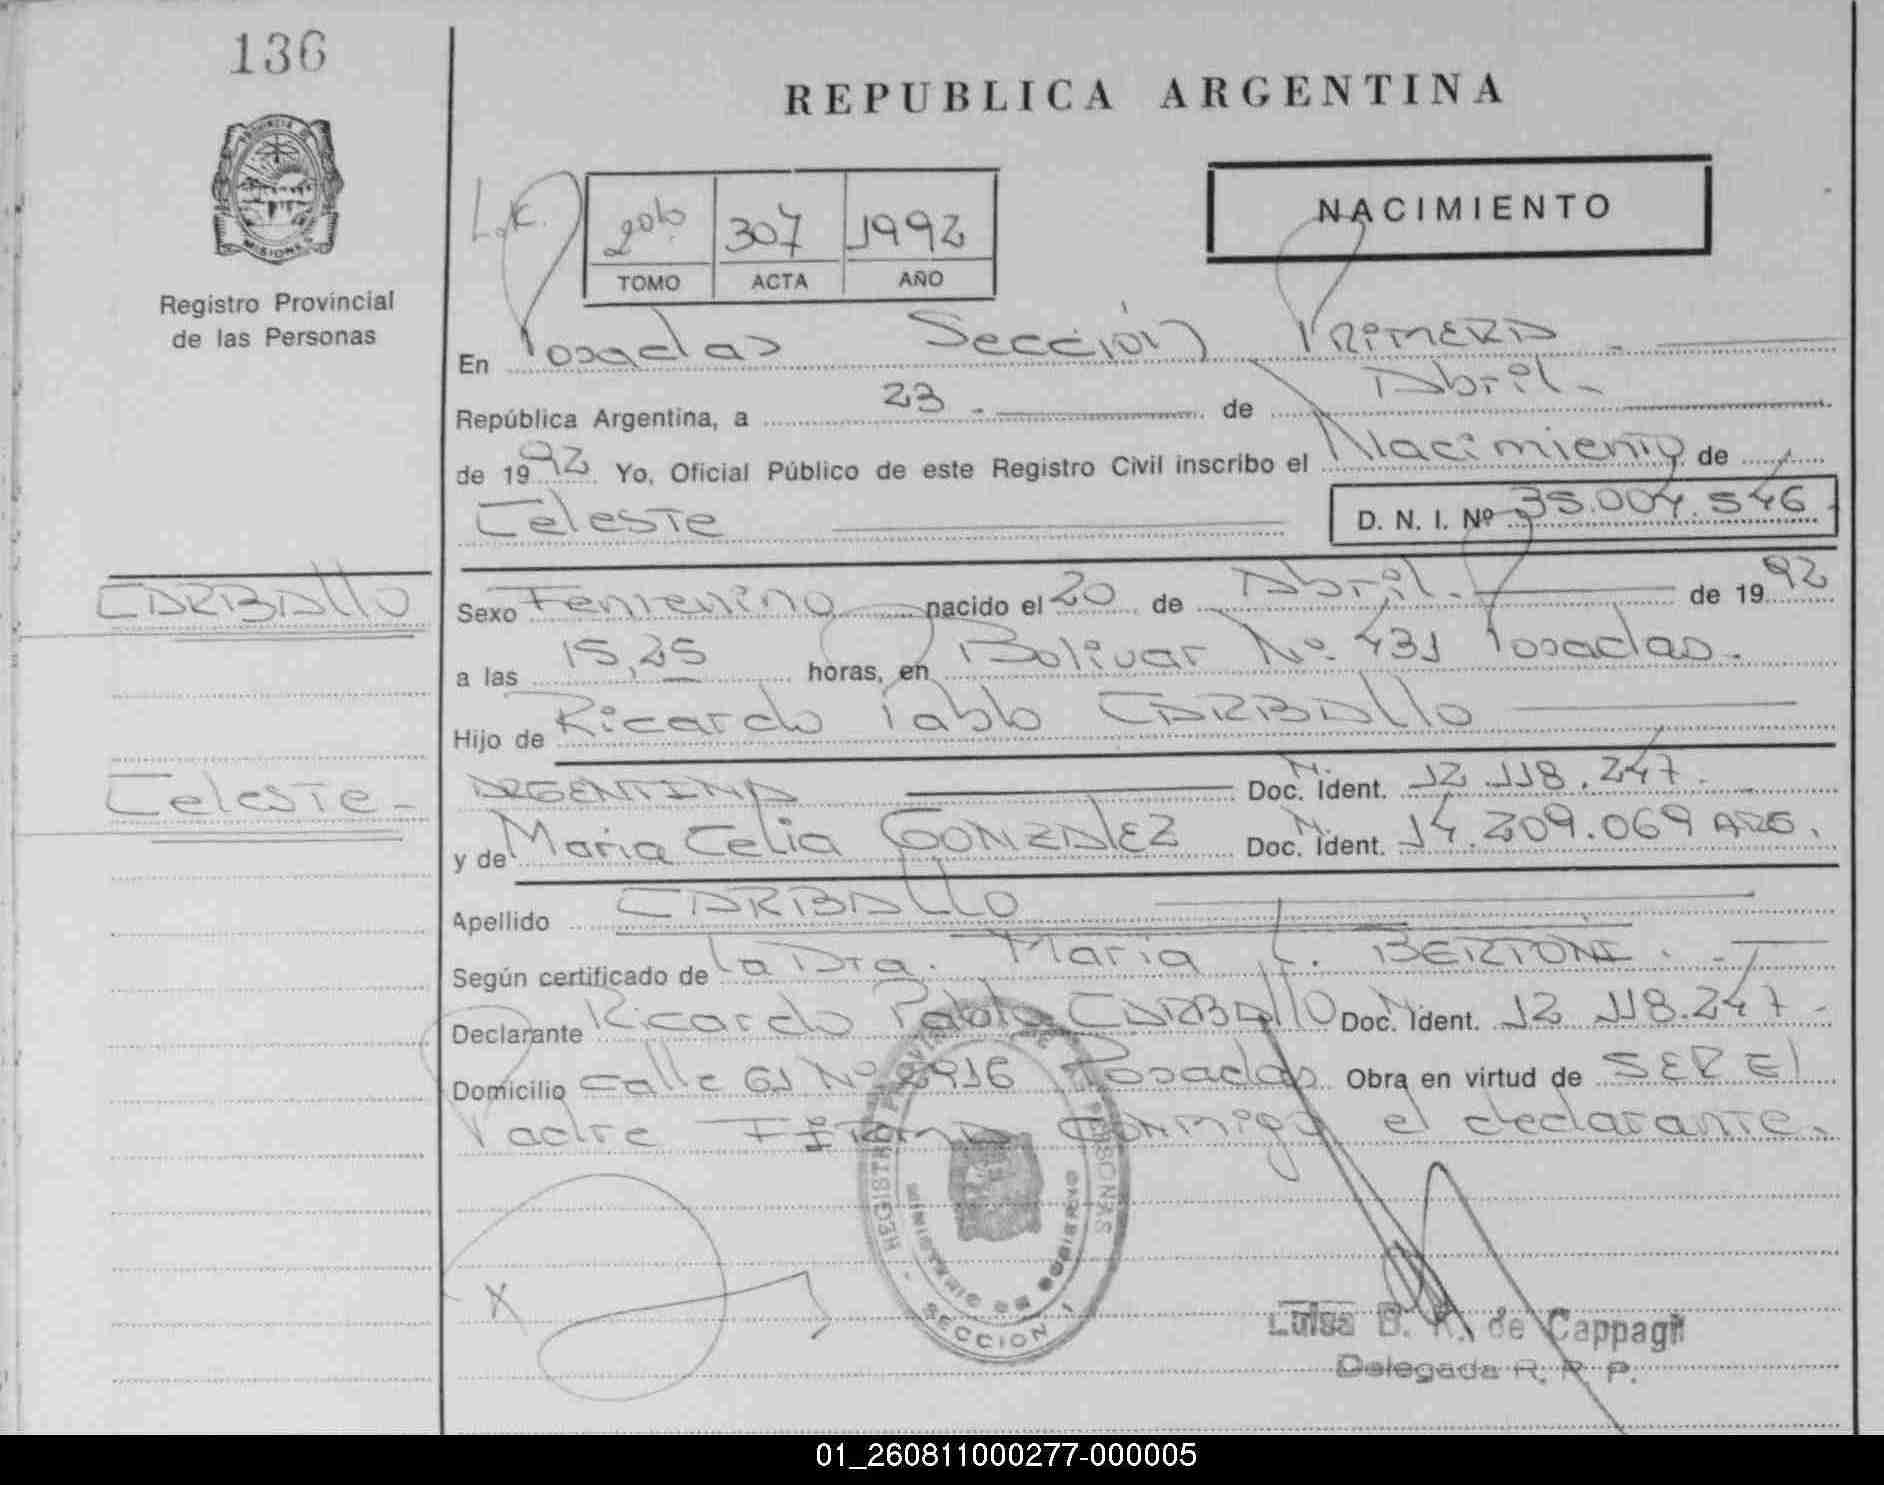 136
REPUBLICA ARGENTINA
PROVINCIA DE
MISIONES
Registro Provincial
de las Personas
NACIMIENTO
2do 307 1992
TOMO ACTA AÑO
En Posadas Sección PRIMERA.-
República Argentina, a 23.- de Abril.-
de 1992 Yo, Oficial Público de este Registro Civil inscribo el Nacimiento de
Celeste D. N. I. Nº 35.004.546.
CARBALLO
Sexo Femenino nacido el 20 de Abril.- de 1992
a las 15,25 horas, en Bolivar Nº. 431 Posadas.
Hijo de Ricardo Pablo CARBALLO
Celeste.-
ARGENTINA Doc. N. Ident. 12.118.247.
y de Maria Celia GONZALEZ Doc. N. Ident. 14.209.069 ARG.
Apellido CARBALLO
Según certificado de la Dra. Maria L. BERTONI.-
Declarante Ricardo Pablo CARBALLO Doc. N. Ident. 12.118.247.-
Domicilio calle 61 Nº 6916 Posadas Obra en virtud de SER El
Padre FIRMA CONmigo el declarante.
REGISTRO PROVINCIAL DE PERSONAS
MINISTERIO DE GOBIERNO
SECCION 1
X
Luisa B. K. de
Delegada R. P. P.
01_260811000277-000005